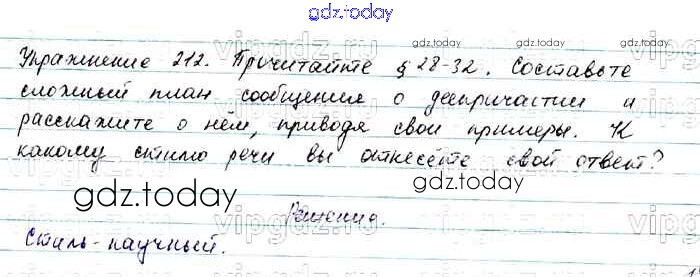 gdz.today
Упражнение 212. Прочитайте § 28-32. Составьте
gdz.today
gdz.today
сложный план сообщения о деепричастии и
расскажите о нём, приводя свои примеры. К
какому стилю речи вы отнесёте свой ответ?
gdz.today
gdz.today
Решение.
Стиль - научный.